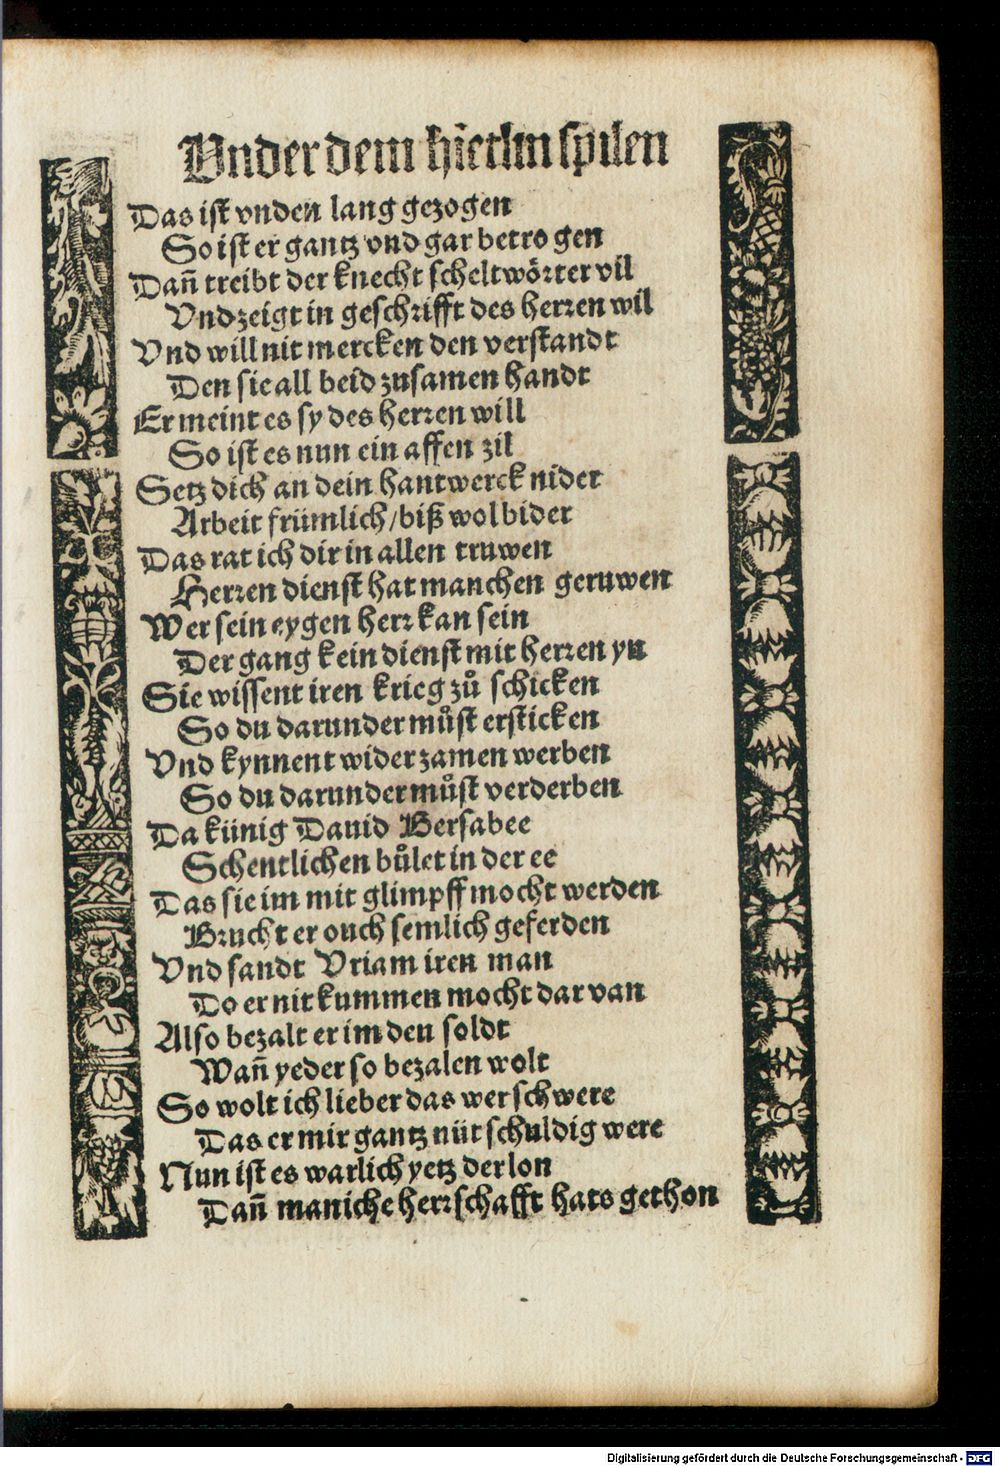 Vnder dem hietlin spilen
Das ist vnden lang gezogen
So ist er gantz vnd gar betrogen
Dañ treibt der knecht scheltwörter vil
Vnd zeigt in geschrifft des herren wil
Vnd will nit mercken den verstandt
Den sie all beid zusamen handt
Er meint es sy des herren will
So ist es nun ein affen zil
Setz dich an dein hantwerck nider
Arbeit frümlich/biß wol bider
Das rat ich dir in allen truwen
Herren dienst hat manchen geruwen
Wer sein eygen herr kan sein
Der gang kein dienst mit herren yn
Sie wissent iren krieg zů schicken
So du darunder můst ersticken
Vnd kynnent wider zamen werben
So du darunder můst verderben
Da künig Dauid Bersabee
Schentlichen bůlet in der ee
Das sie im mit glimpff mocht werden
Brucht er ouch semlich geferden
Vnd sandt Vriam iren man
Do er nit kummen mocht dar van
Also bezalt er im den soldt
Wañ yeder so bezalen wolt
So wolt ich lieber das wer schwere
Das er mir gantz nüt schuldig were
Nun ist es warlich yetz der lon
Dañ maniche herrschafft hats gethon
Digitalisierung gefördert durch die Deutsche Forschungsgemeinschaft - DFG